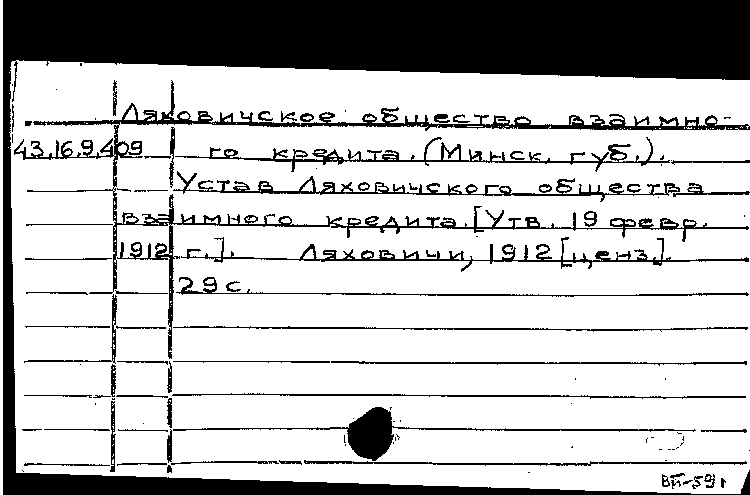 Ляховичское общество взаимно-
43.16.9.409 го кредита. (Минск. губ.).
Устав Ляховичского общества
взаимного кредита. [Утв. 19 февр.
1912 г.]. Ляховичи, 1912 [ценз.].
29 с.